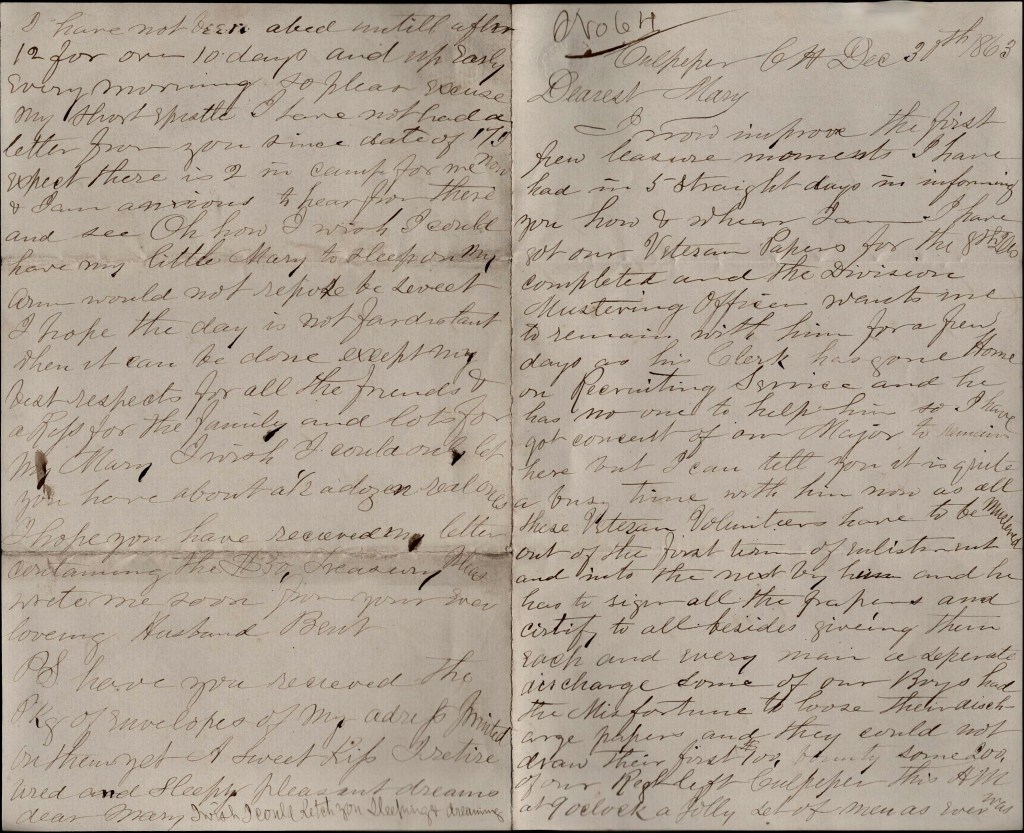 No 64
Culpeper C H Dec 30th 1863
Dearest Mary
I now improve the first
few leasure moments I have
had in 5 straight days in informing
you how & whear I am I have
got our Veteran Papers for the 8th Ills
completed and the Division
Mustering Officer wants me
to remain with him for a few
days as his Clerk has gone Home
on Recruiting Service and he
has no one to help him so I have
got concent of our Major to remain
here but I can tell you it is quite
a busy time with him now as all
these Veteran Volunteers have to be Mustered
out of the first term of enlistment
and into the next by him and he
has to sign all the papers and
certify to all besides giveing them
each and every man a seperate
discharge some of our Boys had
the Misfortune to loose their disch-
arge papers and they could not
draw their first bounty some 200,
of our Regt left Culpeper this AM
at 9 oclock a Jolly set of men as ever was
I have not been abed untill after
12 for over 10 days and up Early
every morning so pleas excuse
My short Epistle I have not had a
letter from you since date of 17th
expect there is 2 in camp for me now
& I am anxious to hear from there
and see Oh how I wish I could
have my little Mary to sleep on my
arm would not repose be sweet
I hope the day is not far distant
when it can be done except my
best respects for all the friends &
a Kiss for the Family and lots for
My Mary I wish I could only let
you have about a 1/2 a dozen real ones
I hope you have received my letter
containing the $50, Treasury Pleas
write me soon from your Ever
loveing Husband Bent
PS have you received the
Pkg of envelopes of my adress Printed
on them yet A sweet Kiss I retire
tired and Sleepy pleasant dreams
dear Mary I wish I could ketch you Sleeping & dreaming